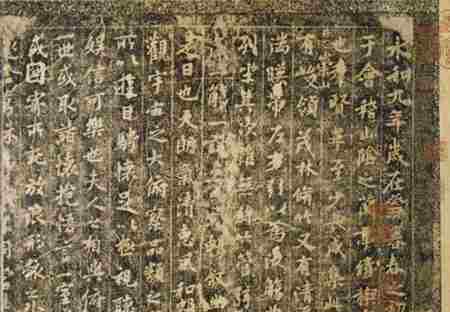 永和九年歲在癸丑暮春之初
于會稽山陰之蘭亭脩禊
也羣賢畢至少長咸集此
有峻領茂林脩竹又有清
湍暎帶左右引以為流觴
列坐其次雖無絲竹管弦
一觴一詠
是日也天朗氣清惠風和暢
觀宇宙之大俯察品類之
所以遊目騁懷足以極視聽
娛信可樂也夫人之相與俯
一世或取諸懷抱悟言一室
或因寄所託放浪形骸之外